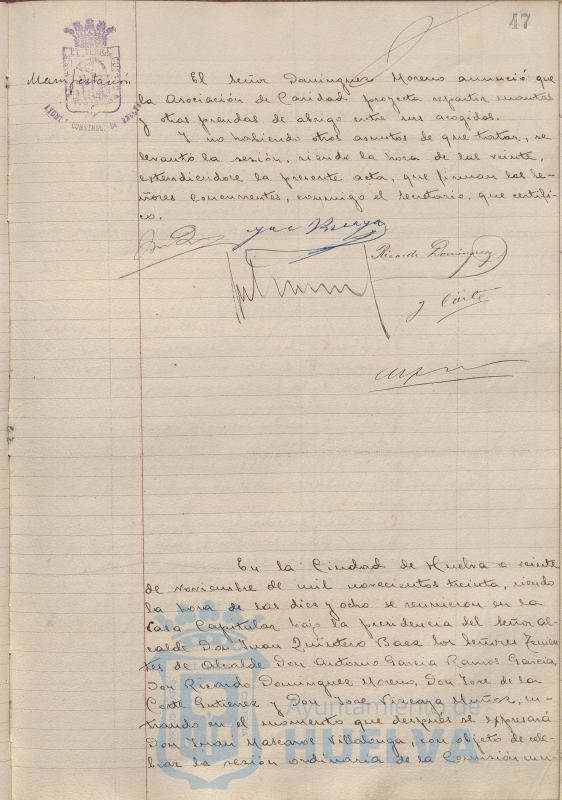 47
Manifestación
El Señor Dominguez Moreno anunció que
la Asociación de Caridad proyecta repartir mantas
y otras prendas de abrigo entre sus acogidos.
Y no habiendo otros asuntos de que tratar, se
levantó la sesión, siendo la hora de las veinte,
extendiendose la presente acta, que firman los Se-
ñores concurrentes, conmigo el Secretario, que certifi-
co.
Ricardo Dominguez
En la Ciudad de Huelva a veinte
de noviembre de mil novecientos treinta, siendo
la hora de las diez y ocho se reunieron en la
Casa Capitular bajo la presidencia del Señor al-
calde Don Juan Quintero Baez los Señores Tenien-
tes de Alcalde Don Antonio Garcia Ramos Garcia,
Don Ricardo Dominguez Moreno, Don Jose de la
Corte Gutierrez y Don Jose Vizcaya Muñoz, en-
trando en el momento que despues se expresará
Don Juan Mascaros Villalonga, con objeto de cele-
brar la sesión ordinaria de la Comisión mu-
Ayuntamiento de
HUELVA